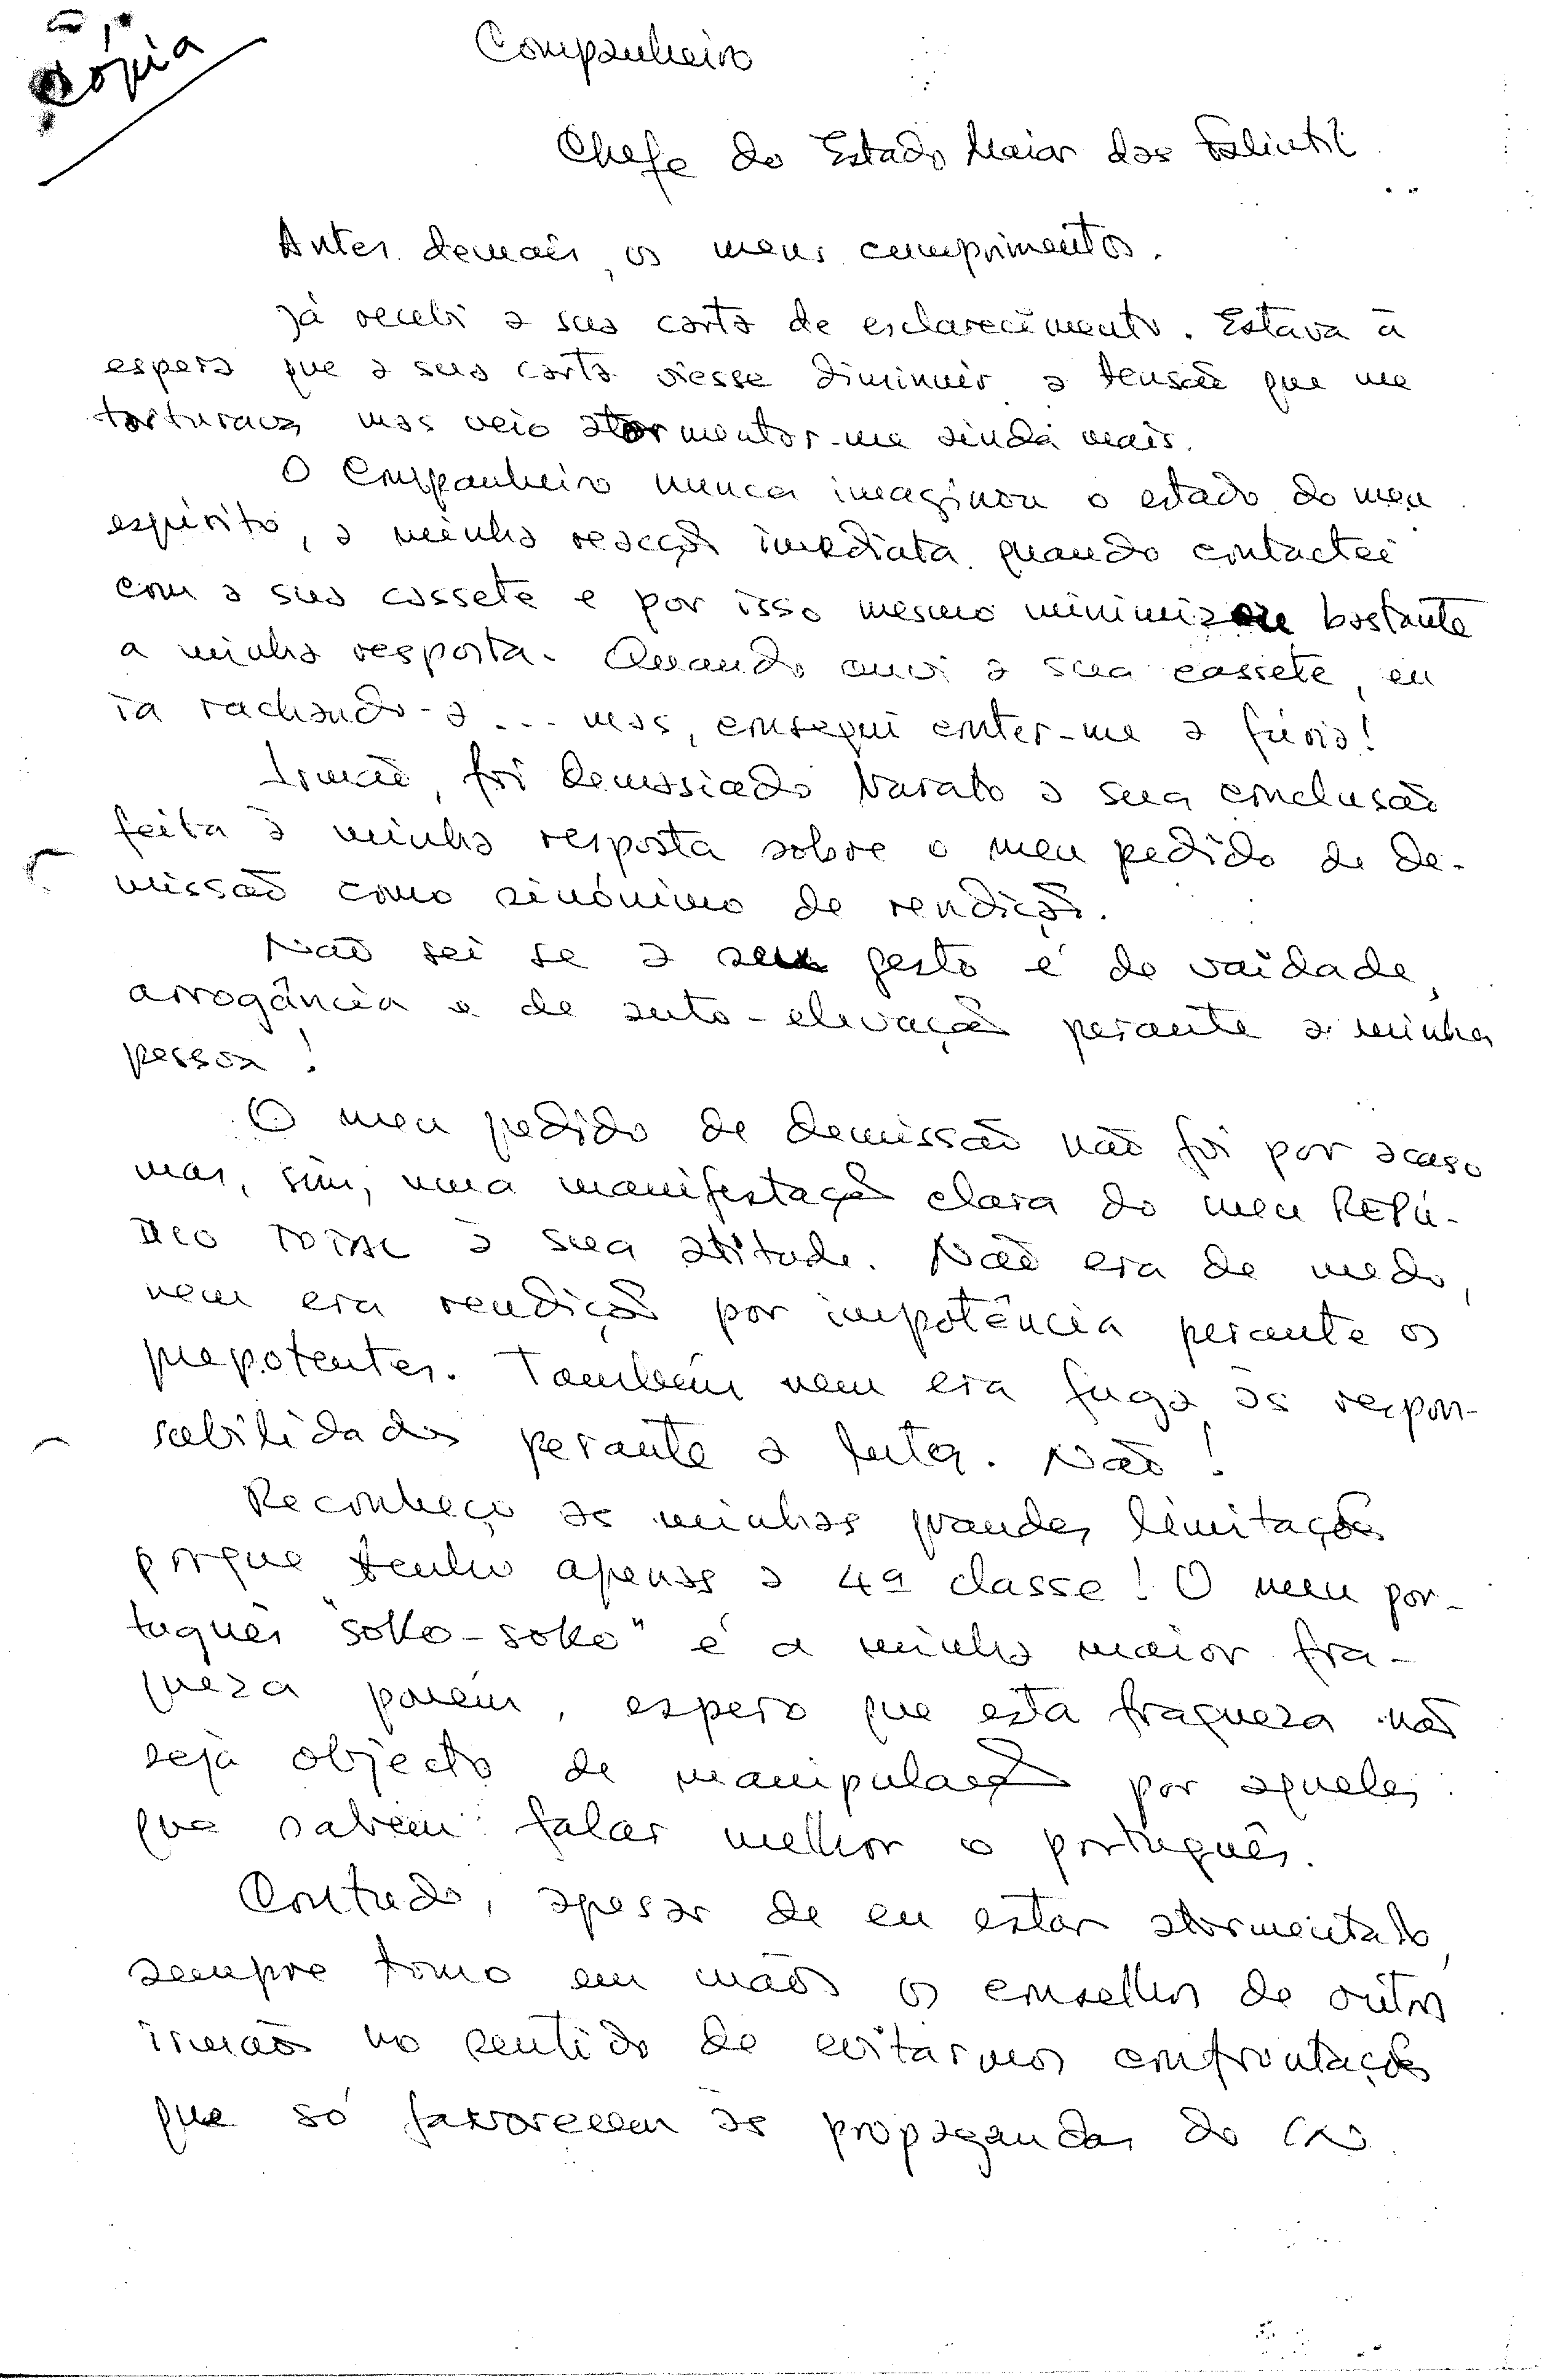 Cópia
Companheiro
Chefe do Estado Maior das Falintil
Antes demais, os meus cumprimentos.
Já recebi a sua carta de esclarecimento. Estava à
espera que a sua carta viesse diminuir a tensão que me
torturava, mas veio atormentar-me ainda mais.
O Companheiro nunca imaginou o estado do meu
espírito, a minha reacção imediata quando contactei
com a sua cassete e por isso mesmo minimizou bastante
a minha resposta. Quando ouvi a sua cassete, eu
ia rachando-a... mas, consegui conter-me a fúria!
Irmão, foi demasiado barato a sua conclusão
feita à minha resposta sobre o meu pedido de de-
missão como sinónimo de rendição.
Não sei se a seu gesto é de vaidade,
arrogância e de auto-elevação perante a minha
pessoa!
O meu pedido de demissão não foi por acaso
mas, sim, uma manifestação clara do meu REPÚ-
DIO TOTAL à sua atitude. Não era de medo,
nem era rendição por impotência perante os
prepotentes. Também nem era fuga às respon-
sabilidades perante a luta. Não!
Reconheço as minhas grandes limitações
porque tenho apenas a 4ª classe! O meu por-
tuguês "soko-soko" é a minha maior fra-
queza porém, espero que esta fraqueza não
seja objecto de manipulação por aqueles
que sabem falar melhor o português.
Contudo, apesar de eu estar atormentado,
sempre tomo em mãos os conselhos de outros
irmãos no sentido de evitarmos confrontações
que só favorecem as propagandas do